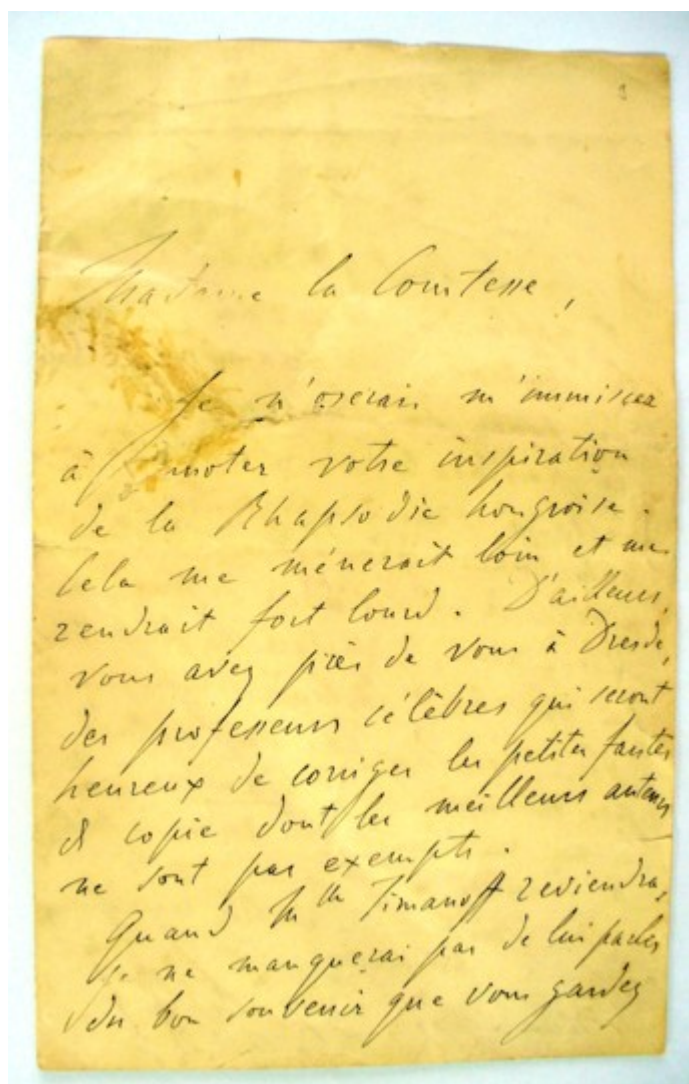 Madame la Comtesse,
Je n'oserais m'immiscer
à noter votre inspiration
de la Rhapsodie hongroise.
Cela me mènerait loin et me
rendrait fort lourd. D'ailleurs,
vous avez près de vous à Dresde,
des professeurs célèbres qui seront
heureux de corriger les petites fautes
de copie dont les meilleurs auteurs
ne sont pas exempts.
Quand Mlle Timanoff reviendra,
je ne manquerai pas de lui parler
du bon souvenir que vous gardez